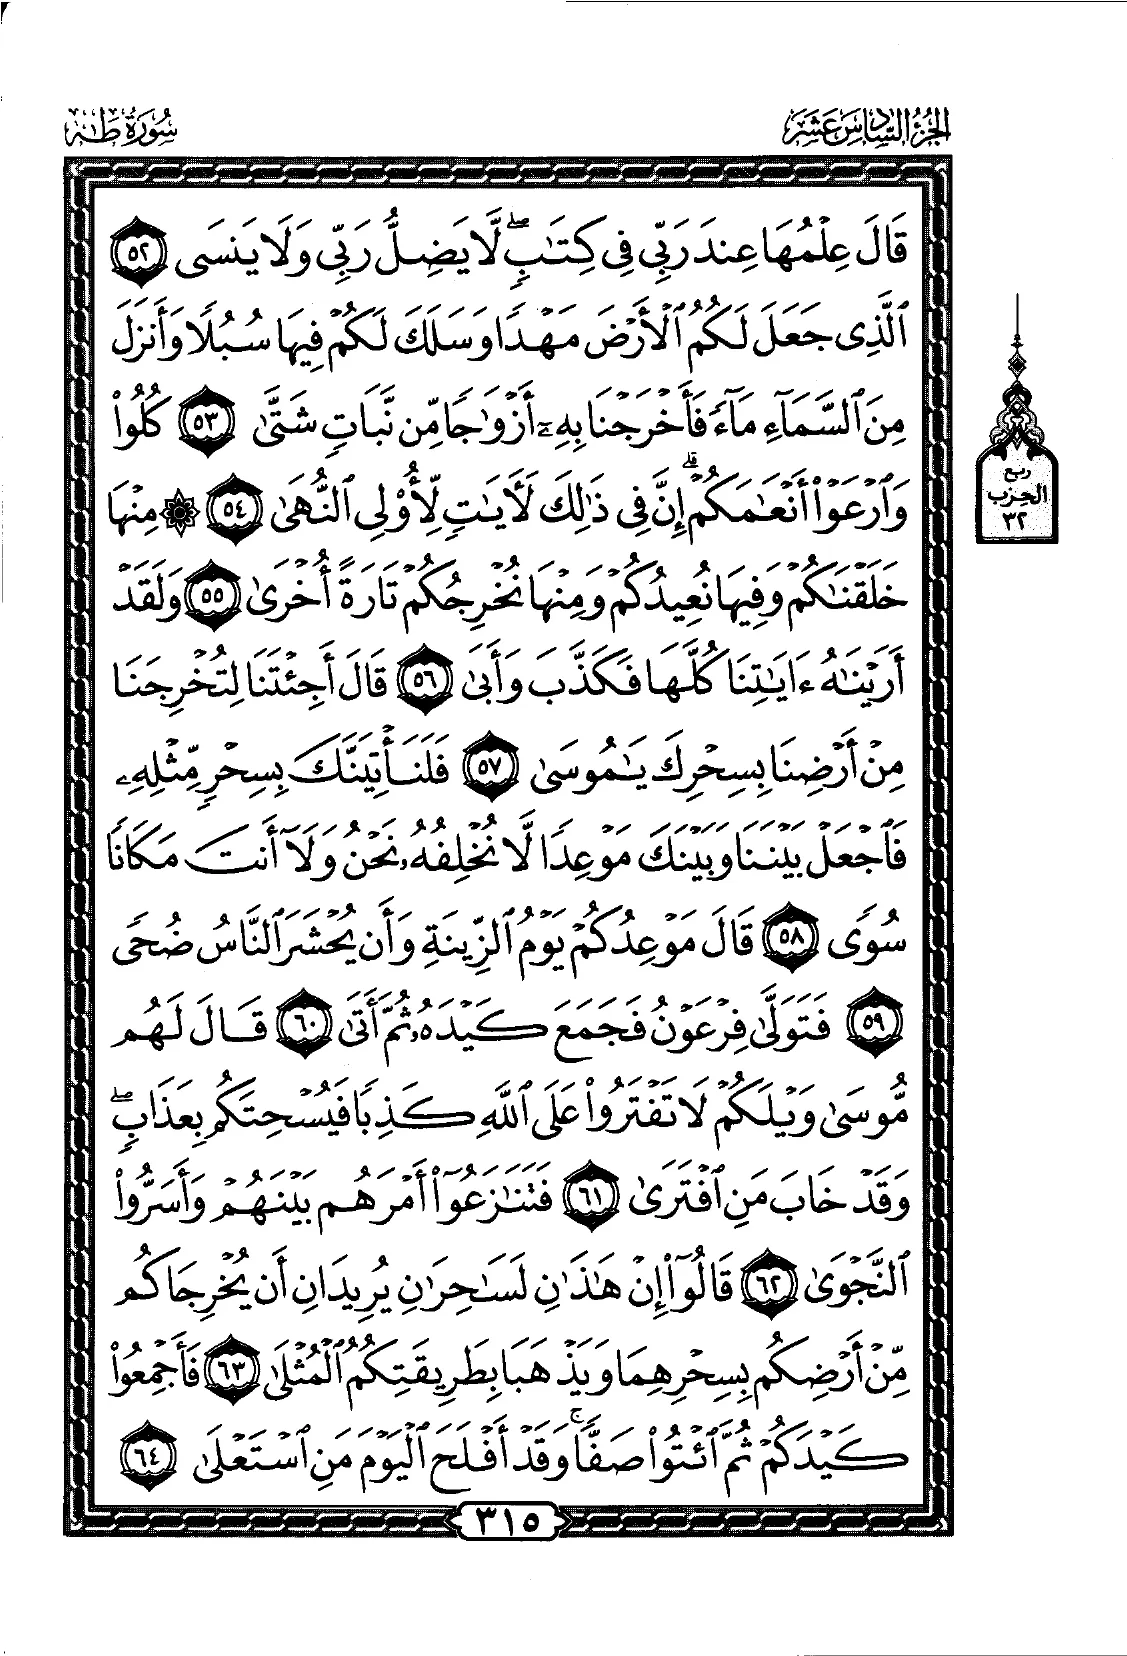 الجزء السادس عشر
سورة طه
قَالَ عِلْمُهَا عِندَ رَبِّى فِى كِتَٰبٍۖ لَّا يَضِلُّ رَبِّى وَلَا يَنسَى ٥٢
ٱلَّذِى جَعَلَ لَكُمُ ٱلْأَرْضَ مَهْدًا وَسَلَكَ لَكُمْ فِيهَا سُبُلًا وَأَنزَلَ
مِنَ ٱلسَّمَآءِ مَآءً فَأَخْرَجْنَا بِهِۦٓ أَزْوَٰجًا مِّن نَّبَاتٍ شَتَّىٰ ٥٣ كُلُوا۟
وَٱرْعَوْا۟ أَنْعَٰمَكُمْۗ إِنَّ فِى ذَٰلِكَ لَـَٔايَٰتٍ لِّأُو۟لِى ٱلنُّهَىٰ ٥٤ ۞ مِنْهَا
خَلَقْنَٰكُمْ وَفِيهَا نُعِيدُكُمْ وَمِنْهَا نُخْرِجُكُمْ تَارَةً أُخْرَىٰ ٥٥ وَلَقَدْ
أَرَيْنَٰهُ ءَايَٰتِنَا كُلَّهَا فَكَذَّبَ وَأَبَىٰ ٥٦ قَالَ أَجِئْتَنَا لِتُخْرِجَنَا
مِنْ أَرْضِنَا بِسِحْرِكَ يَٰمُوسَىٰ ٥٧ فَلَنَأْتِيَنَّكَ بِسِحْرٍ مِّثْلِهِۦ
فَٱجْعَلْ بَيْنَنَا وَبَيْنَكَ مَوْعِدًا لَّا نُخْلِفُهُۥ نَحْنُ وَلَآ أَنتَ مَكَانًا
سُوًى ٥٨ قَالَ مَوْعِدُكُمْ يَوْمُ ٱلزِّينَةِ وَأَن يُحْشَرَ ٱلنَّاسُ ضُحًى
٥٩ فَتَوَلَّىٰ فِرْعَوْنُ فَجَمَعَ كَيْدَهُۥ ثُمَّ أَتَىٰ ٦٠ قَالَ لَهُم
مُّوسَىٰ وَيْلَكُمْ لَا تَفْتَرُوا۟ عَلَى ٱللَّهِ كَذِبًا فَيُسْحِتَكُم بِعَذَابٍۖ
وَقَدْ خَابَ مَنِ ٱفْتَرَىٰ ٦١ فَتَنَٰزَعُوٓا۟ أَمْرَهُم بَيْنَهُمْ وَأَسَرُّوا۟
ٱلنَّجْوَىٰ ٦٢ قَالُوٓا۟ إِنْ هَٰذَٰنِ لَسَٰحِرَٰنِ يُرِيدَانِ أَن يُخْرِجَاكُم
مِّنْ أَرْضِكُم بِسِحْرِهِمَا وَيَذْهَبَا بِطَرِيقَتِكُمُ ٱلْمُثْلَىٰ ٦٣ فَأَجْمِعُوا۟
كَيْدَكُمْ ثُمَّ ٱئْتُوا۟ صَفًّاۚ وَقَدْ أَفْلَحَ ٱلْيَوْمَ مَنِ ٱسْتَعْلَىٰ ٦٤
٣١٥
ربع
الحزب
٣٢